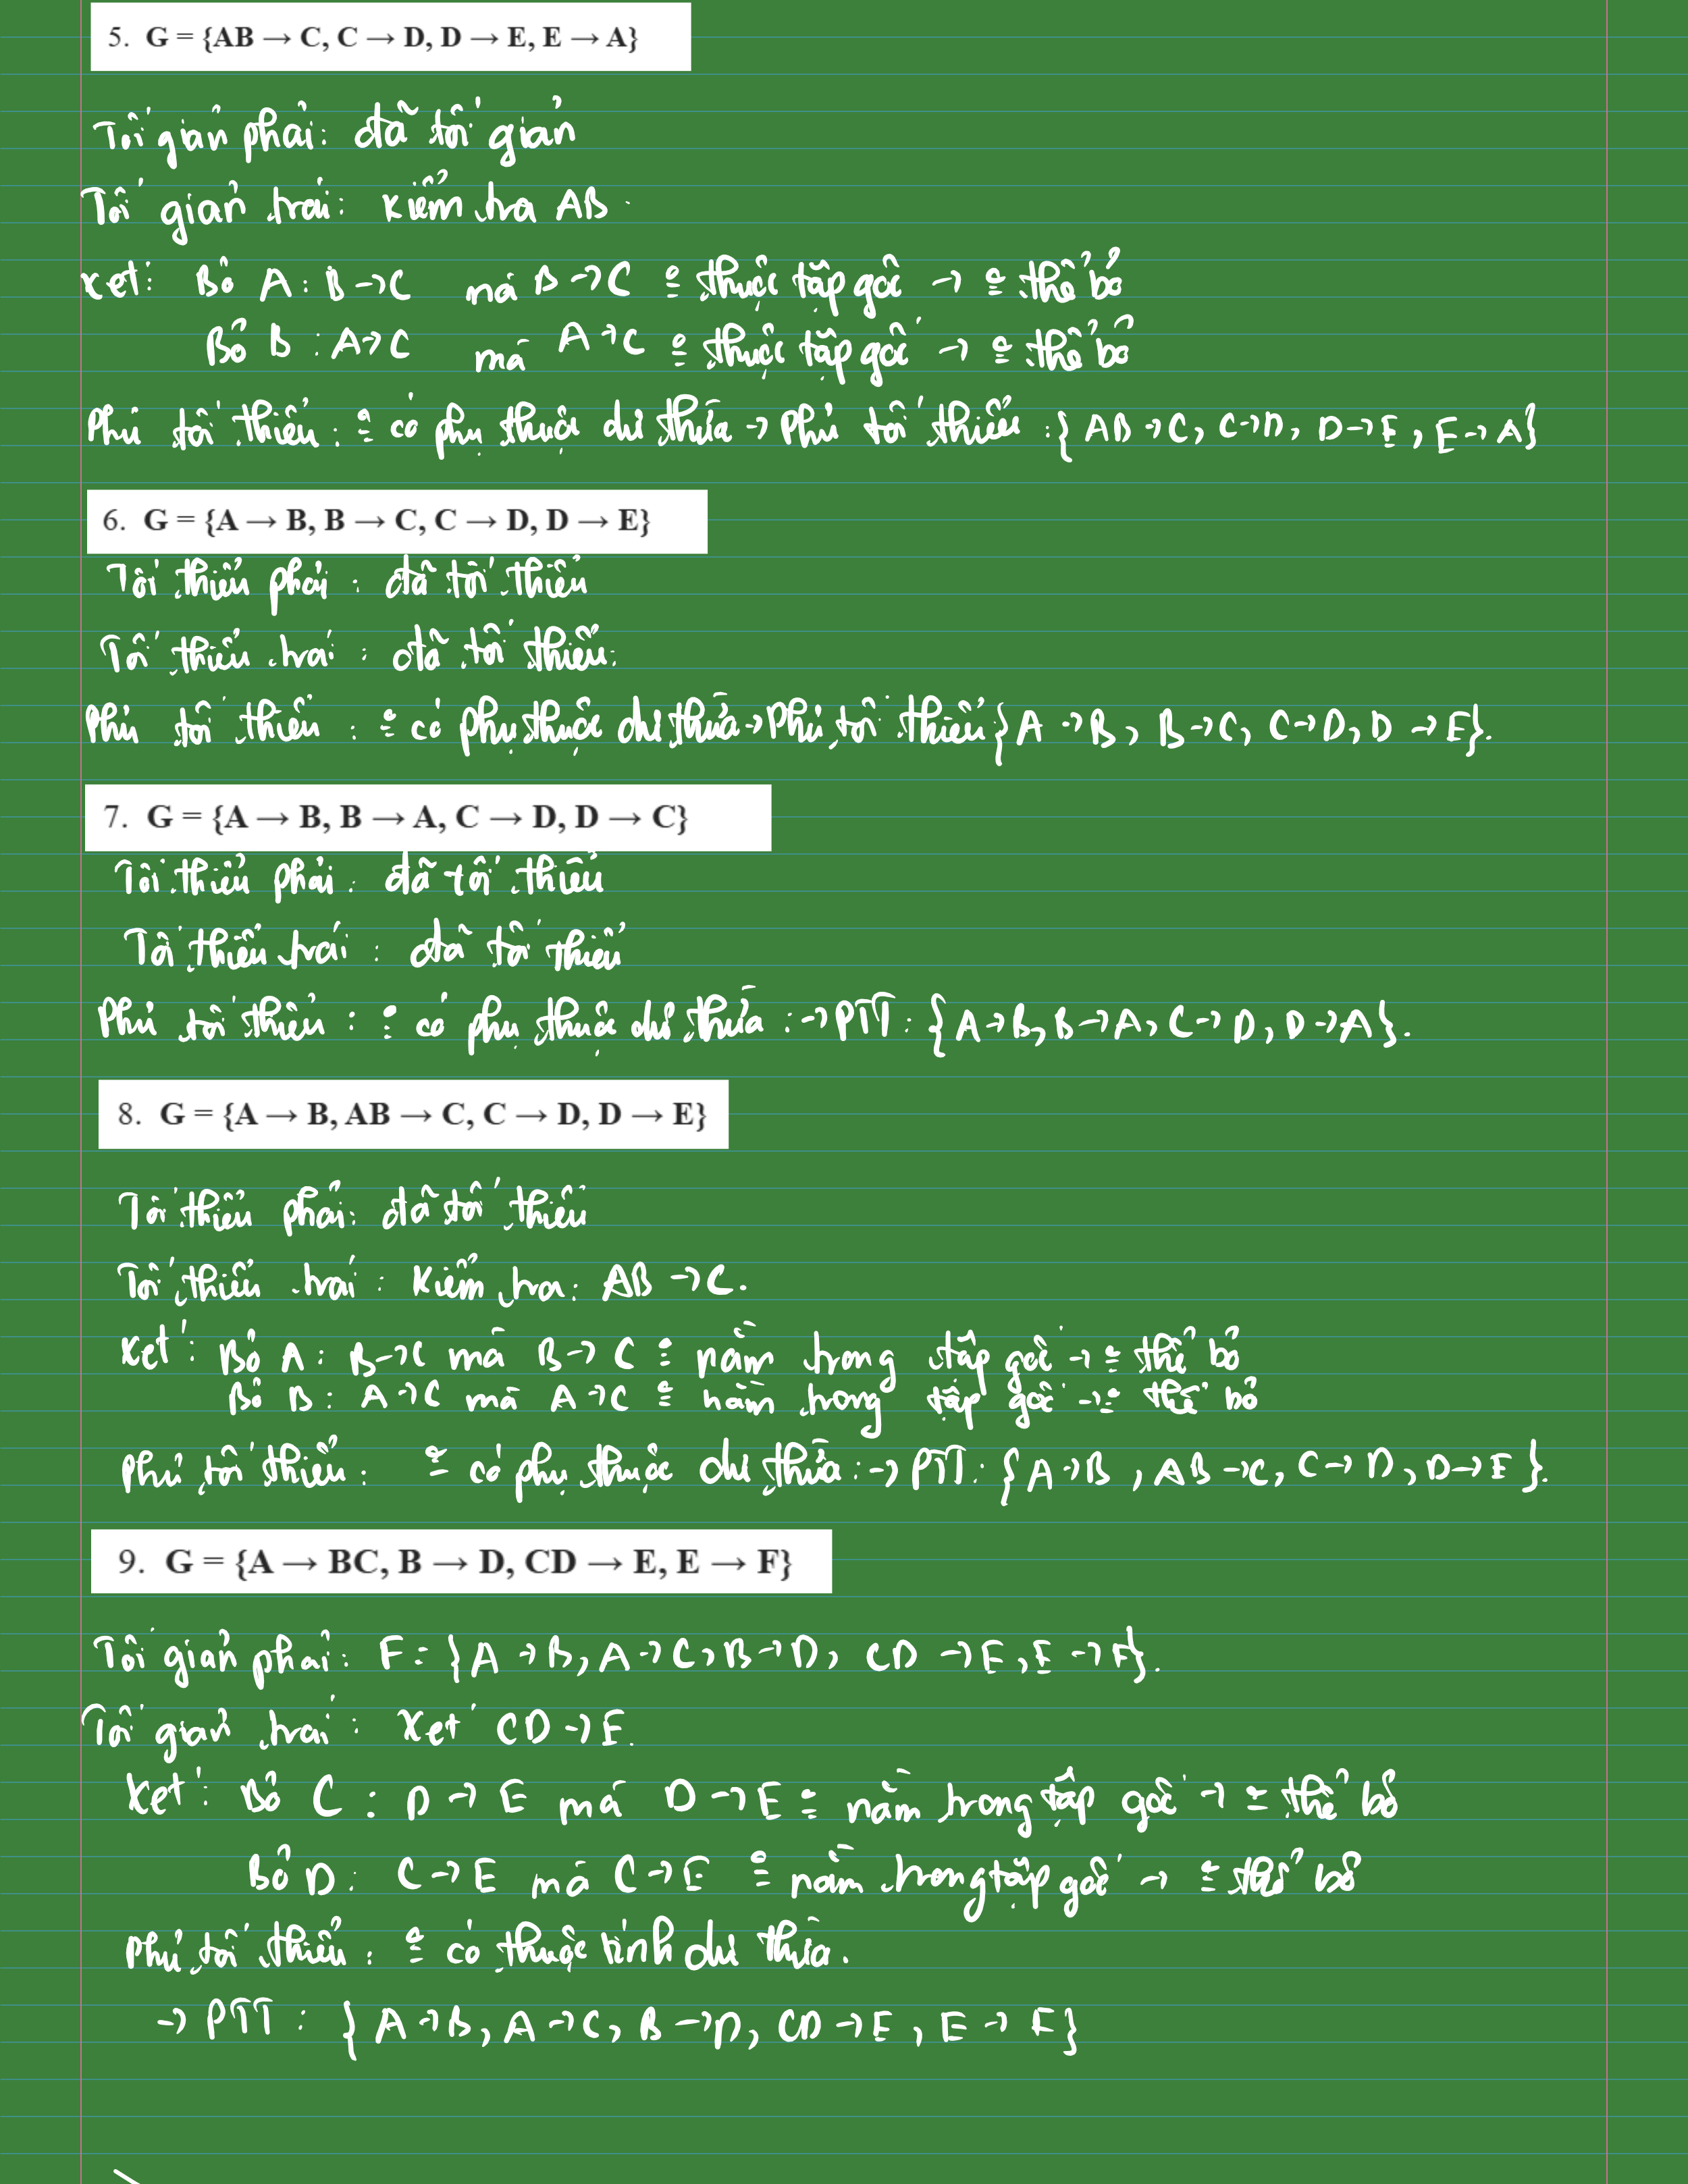 5. G = {AB → C, C → D, D → E, E → A}
Tối giản phải: đã tối giản
Tối giản trái: kiểm tra AB.
Xét: Bỏ A: B → C mà B → C ≗ thuộc tập gốc → ≗ thể bỏ
Bỏ B: A → C mà A → C ≗ thuộc tập gốc → ≗ thể bỏ
Phủ tối thiểu: ≗ có phụ thuộc dư thừa → Phủ tối thiểu: {AB → C, C → D, D → E, E → A}
6. G = {A → B, B → C, C → D, D → E}
Tối thiểu phải: đã tối thiểu
Tối thiểu trái: đã tối thiểu.
Phủ tối thiểu: ≗ có phụ thuộc dư thừa → Phủ tối thiểu {A → B, B → C, C → D, D → E}.
7. G = {A → B, B → A, C → D, D → C}
Tối thiểu phải: đã tối thiểu
Tối thiểu trái: đã tối thiểu
Phủ tối thiểu: ≗ có phụ thuộc dư thừa: → PTT: {A → B, B → A, C → D, D → A}.
8. G = {A → B, AB → C, C → D, D → E}
Tối thiểu phải: đã tối thiểu
Tối thiểu trái: kiểm tra: AB → C.
Xét: Bỏ A: B → C mà B → C ≗ nằm trong tập gốc → ≗ thể bỏ
Bỏ B: A → C mà A → C ≗ nằm trong tập gốc → ≗ thể bỏ
Phủ tối thiểu: ≗ có phụ thuộc dư thừa: → PTT: {A → B, AB → C, C → D, D → E}.
9. G = {A → BC, B → D, CD → E, E → F}
Tối giản phải: F = {A → B, A → C, B → D, CD → E, E → F}.
Tối giản trái: Xét CD → E.
Xét: Bỏ C: D → E mà D → E ≗ nằm trong tập gốc → ≗ thể bỏ
Bỏ D: C → E mà C → E ≗ nằm trong tập gốc → ≗ thể bỏ
Phủ tối thiểu: ≗ có thuộc tính dư thừa.
→ PTT: {A → B, A → C, B → D, CD → E, E → F}